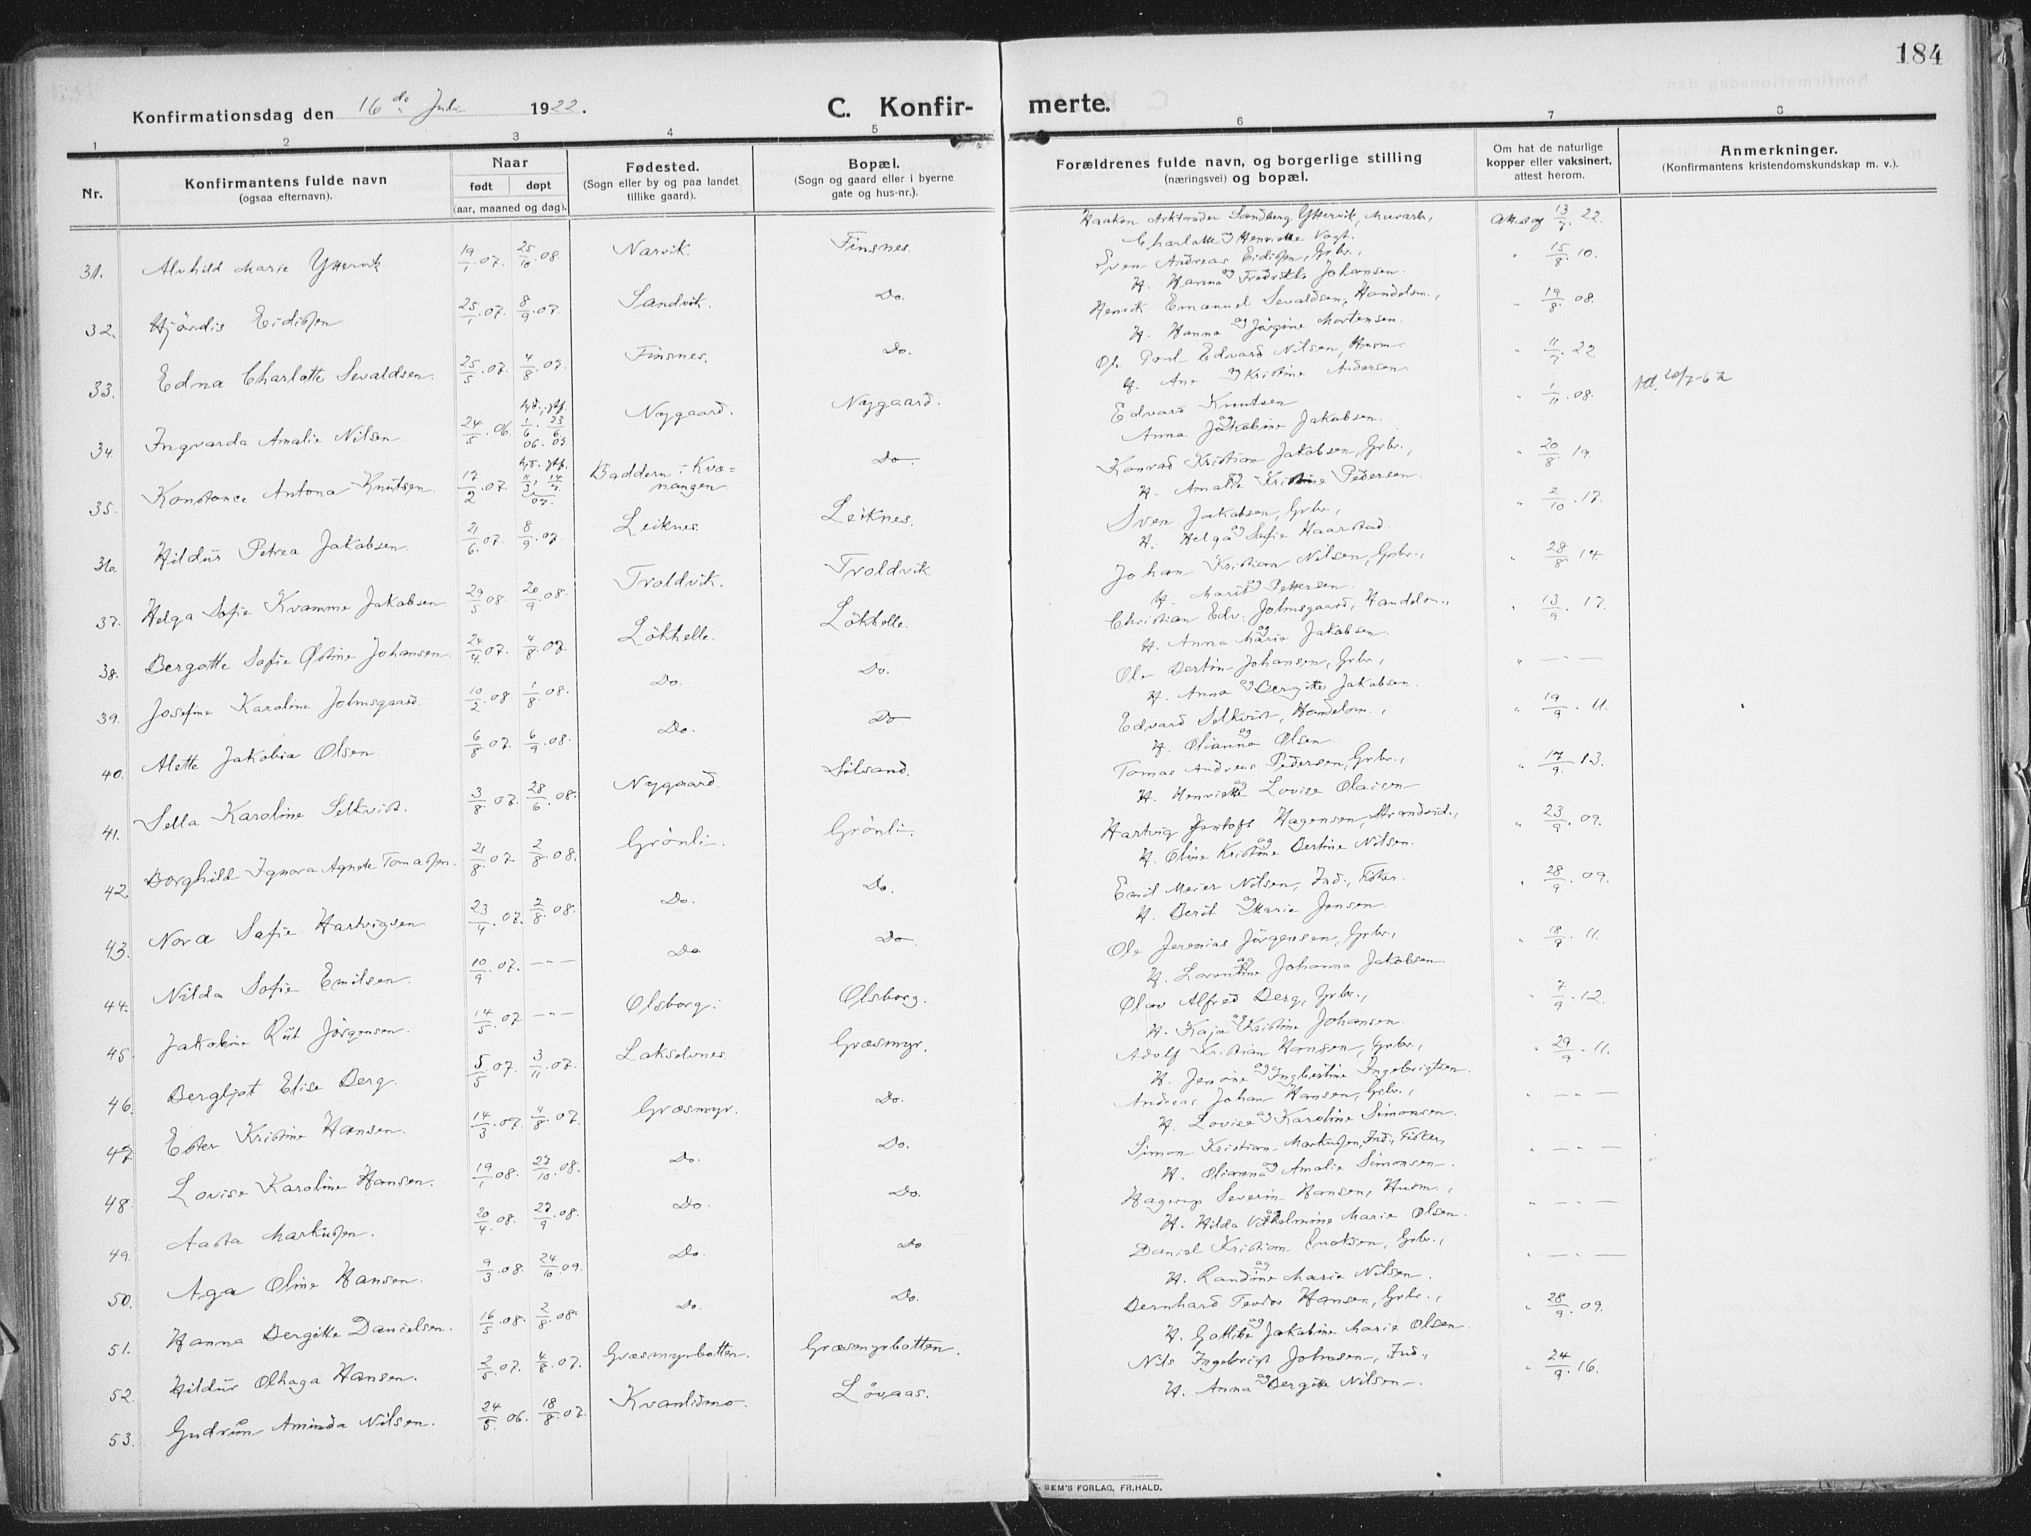 184
Konfirmationsdag den 16 de Juli 1922. C. Konfir- merte.
1 2 3 4 5 6 7 8
Nr. Konfirmantens fulde navn (ogsaa efternavn). Naar født døpt (aar, maaned og dag). Fødested. (Sogn eller by og paa landet tillike gaard). Bopæl. (Sogn og gaard eller i byerne gate og hus-nr.). Forældrenes fulde navn, og borgerlige stilling (næringsvei) og bopæl. Om hat de naturlige kopper eller vaksinert, attest herom. Anmerkninger. (Konfirmantens kristendomskundskap m. v.).
31. Alvhild Marie Yttervik 19/1.07. 25/10.08 Narvik. Finsnes. Haakon Sandberg Yttervik, Murarb., 13/7 22.
Charlotte og Henriette Vogt.
32. Hjördis Eidissen 25/1.07. 8/9.07. Sandvik. Do. Sven Andreas Eidissen, Grbr., " 15/8 10.
H. Hanna og Fredrikke Johansen.
33. Edna Charlotte Sevaldsen. 25/5.07. 4/8.07. Finsnes. Do. Henrik Emanuel Sevaldsen, Handelsm., " 19/8 08.
H. Hanna og Jörgine Mortensen.
34 Ingvarda Amalie Nilsen. 24/5.06. 1/6 06. 23/6 07 Nygaard. Nygaard. Ole Edvard Nilsen, Husm. " 11/7 22
H. Ane og Kristine Andersen
35. Konstance Antona Knutsen. 17/2.07. 11/3. 14/7 07. Baddern i Kvæ= nangen Do. Edvard Knutsen " 1/11.08.
Anna og Jakobine Jakobsen.
36. Hildur Petrea Jakobsen. 21/6.07. 8/9.07 Leiknes. Leiknes. Konrad Kristian Jakobsen, Grbr., " 20/8 19.
H. Amalie og Kristine Pedersen.
37. Helga Sofie Kvamme Jakobsen 29/5 08. 20/9.08. Troldvik. Troldvik Sven Jakobsen, Grbr., " 2/10.17.
H. Helga og Sofie Haarstad.
38. Bergette Sofie Östine Johansen 24/4 07. 4/8.07 Lökhelle. Lökhelle. Johan Kristian Nilsen, Grbr., " 28/8 14
H. Marit og Pettersen.
39. Josefine Karoline Johnsgaard. 10/2.08 1/8.08. Do. Do. Christian Edv. Johnsgaard, Handelsm., " 13/9. 17.
H. Anna og Marie Jakobsen.
40. Alette Jakobia Olsen. 6/8 07. 6/9.08. Do. Do Ole Bertin Johansen, Grbr., " — " —
H. Anna og Bergitte Jakobsen.
41. Sella Karoline Selkvist. 3/8.07. 28/6.08. Nygaard. Silsand. Edvard Selkvist, Handelsm., " 19/9.11.
H. Olianna og Olsen.
42. Borghild Ignora Agnete Tomassen. 21/8.07. 2/8.08. Grönli. Grönli. Tomas Andreas Pedersen, Grbr., " 17/9.13.
H. Henriette og Lovise Olaisen
43. Nora Sofie Hartvigsen 23/4.07. 2/8.08. Do. Do. Hartvig Jentoft Hagensen, Strandsid., " 23/9.09.
H. Oline Kristine og Bertine Nilsen.
44. Nilda Sofie Emilsen. 10/9.07. — " — Do Do Emil Meier Nilsen, Ind., Fisker. " 28/9.09.
H. Berit og Marie Jensen.
45. Jakobine Rut Jörgensen. 14/5.07 — " — Olsborg. Olsborg. Ole Jeremias Jörgensen, Grbr., " 18/9.11.
H. Lorentine og Johanna Jakobsen.
46. Bergljot Elise Berg. 5/5 07. 3/11.07. Lakselvnes Græsmyr. Olav Alfred Berg, Grbr., " 7/9.12.
H. Kaja og Kristine Johansen.
47. Ester Kristine Hansen. 14/3.07. 4/8.07. Græsmyr. Do. Adolf Kristian Hansen, Grbr., " 29/9.11.
H. Jensine og Ingbertine Ingebrigtsen.
48. Lovise Karoline Hansen. 19/1.08. 27/10.08. Do. Do. Andreas Johan Hansen, Grbr., " — " —
H. Lovise og Karoline Simonsen.
49. Aasta Markussen. 20/4.08. 27/9.08. Do. Do. Simon Kristian Markussen, Ind., Fisker, " — " —
H. Olianna og Amalie Simonsen.
50. Aga Oline Hansen. 9/3.08. 24/10.09. Do. Do Hagerup Severin Hansen, Husm., " — " —
H. Hilda Vilhelmine og Marie Olsen.
51. Hanna Bergitte Danielsen. 16/5.08. 2/8.08. Do. Do. Daniel Kristian Enoksen, Grbr., " — " —
H. Randine og Marie Nilsen.
52. Hildur Olhaga Hansen. 2/5.07. 4/8.07. Græsmyrbotten. Græsmyrbotten. Bernhard Teodor Hansen, Grbr., " 28/9.09.
H. Gotlibe og Jakobine Marie Olsen.
53. Gudrun Aminda Nilsen. 24/5.06. 18/8.07. Kvanlidmo. Lövaas. Nils Ingebrigt Johnsen, Ind., " 24/9.16.
H. Anna og Bergitte Nilsen.
SEM'S FORLAG, FR.HALD.